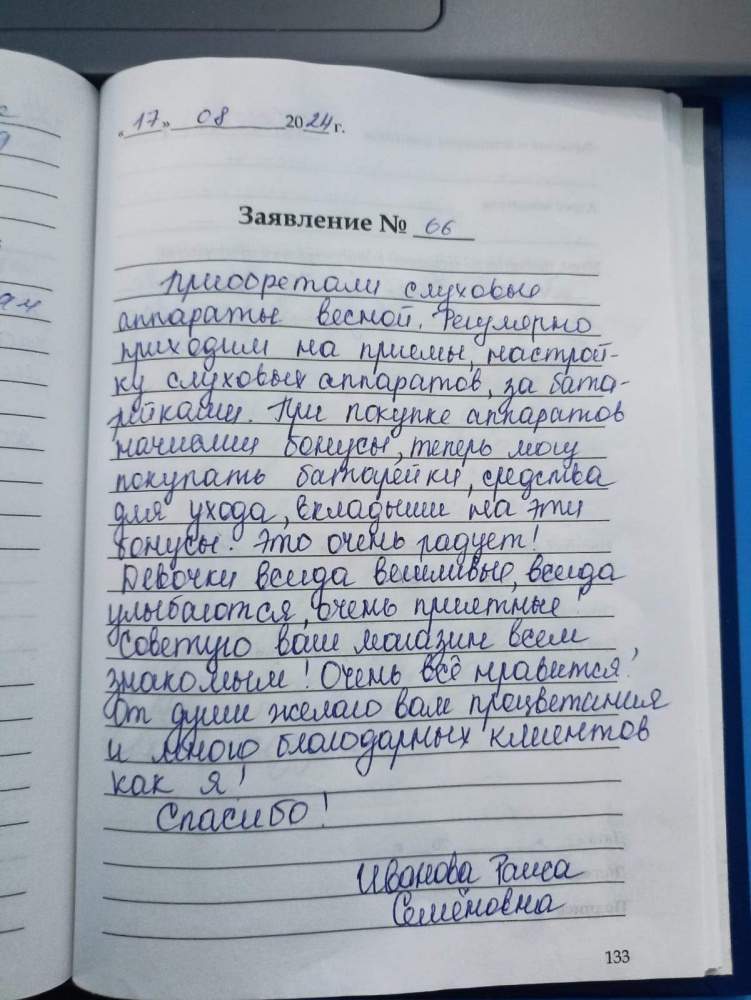 «17» 08 2024 г.
Заявление № 66
Приобретали слуховые
аппараты весной. Регулярно
приходим на приемы, настрой-
ку слуховых аппаратов, за бата-
рейками. При покупке аппаратов
начислили бонусы, теперь могу
покупать батарейки, средства
для ухода, вкладыши на эти
бонусы. Это очень радует!
Девочки всегда вежливые, всегда
улыбаются, очень приятные!
Советую ваш магазин всем
знакомым! Очень всё нравится!
От души желаю вам процветания
и много благодарных клиентов
как я!
Спасибо!
Иванова Раиса
Семёновна
133